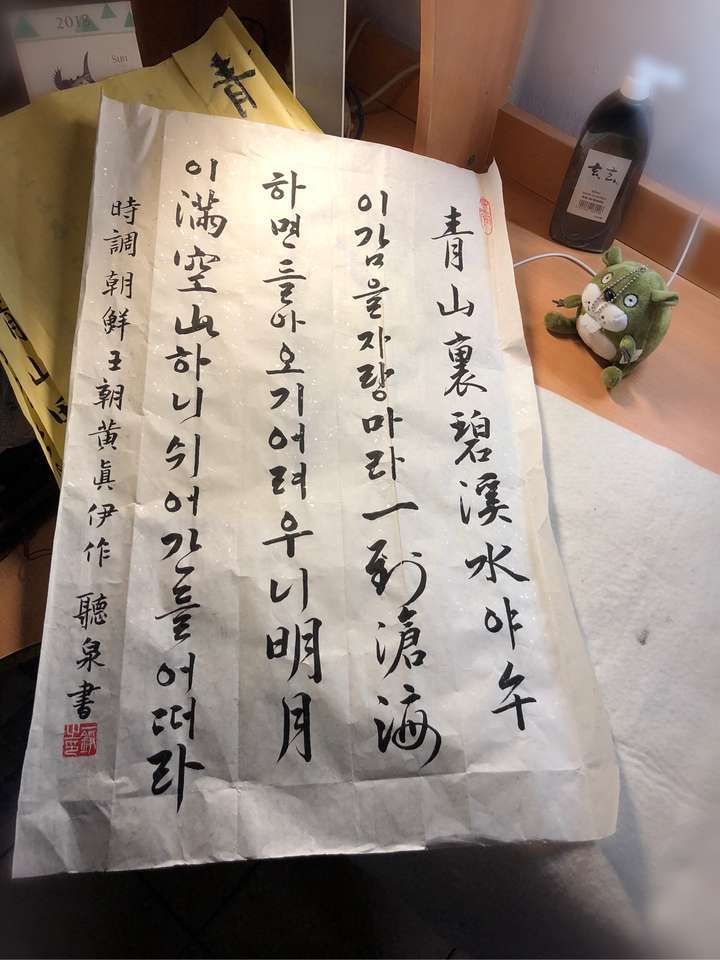 青山裏碧溪水야수
이감을자랑마라一到滄海
하면돌아오기어려우니明月
이滿空山하니쉬어간들어떠라
時調朝鮮王朝黃眞伊作 聽泉書
2018
Sun
青